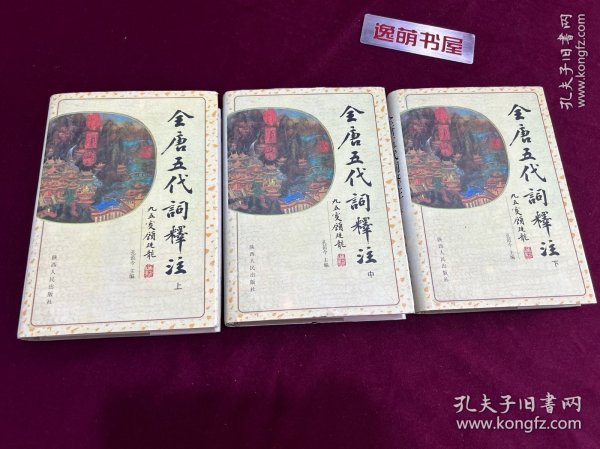 逸萌书屋
全唐五代詞釋注
上
九五叟顧廷龍
孔范今 主编
陕西人民出版社
全唐五代詞釋注
中
九五叟顧廷龍
孔范今 主编
陕西人民出版社
全唐五代詞釋注
下
九五叟顧廷龍
孔范今 主编
陕西人民出版社
孔夫子旧书网
kongfz.com
孔夫子旧书网
www.kongfz.com